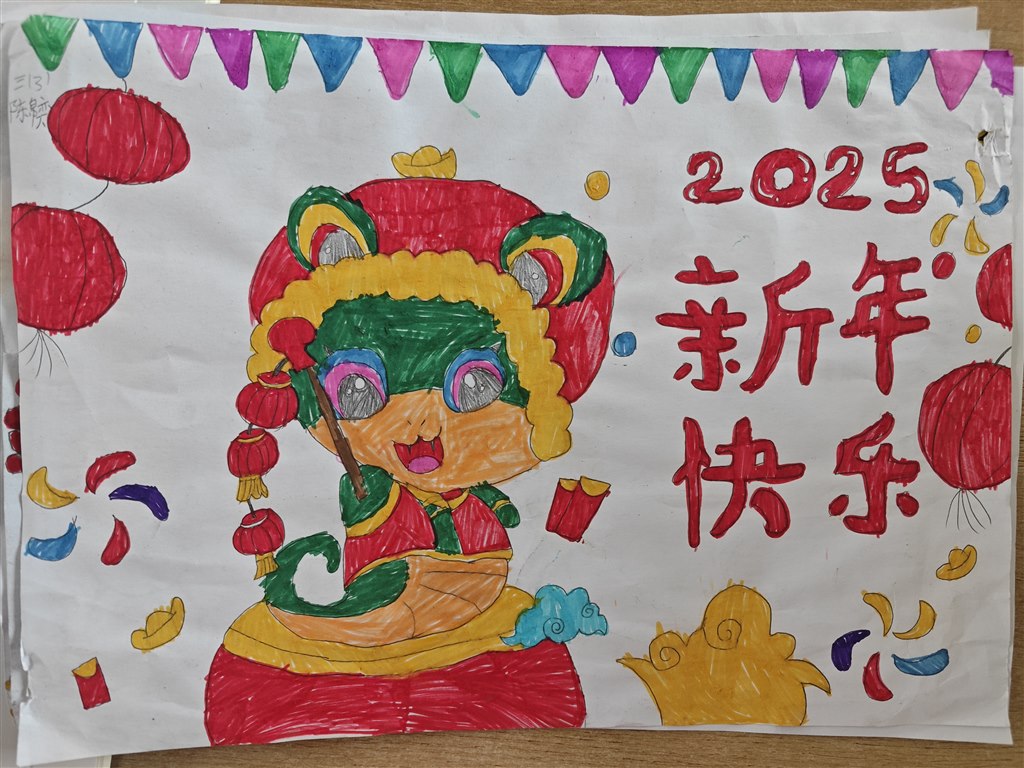 三(3)
2025
新年
快乐